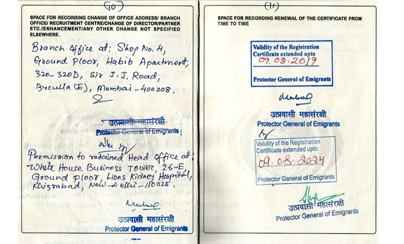 (10)
SPACE FOR RECORDING CHANGE OF OFFICE ADDRESS/ BRANCH
OFFICE/ RECRUITMENT CENTRE/CHANGE OF DIRECTOR/PARTNER
ETC./ENHANCEMENT/ANY OTHER CHANGE NOT SPECIFIED
ELSEWHERE.
Branch Office at: Shop No. 4,
Ground Floor, Habib Apartment,
320-320D, Sir J.J. Road,
Byculla (E), Mumbai-400008.
उत्प्रवासी महासंरक्षी
Protector General of Emigrants
Permission to retained Head Office at
White House Business Tower, 26-E,
Ground Floor, Lions Kidney Hospital,
Khizrabad, New-Delhi-110025.
उत्प्रवासी महासंरक्षी
Protector General of Emigrants
(11)
SPACE FOR RECORDING RENEWAL OF THE CERTIFICATE FROM
TIME TO TIME
Validity of the Registration
Certificate extended upto
09.08.2019
Protector General of Emigrants
उत्प्रवासी महासंरक्षी
Protector General of Emigrants
Validity of the Registration
Certificate extended upto
09.08.2024
Protector General of Emigrants
उत्प्रवासी महासंरक्षी
Protector General of Emigrants